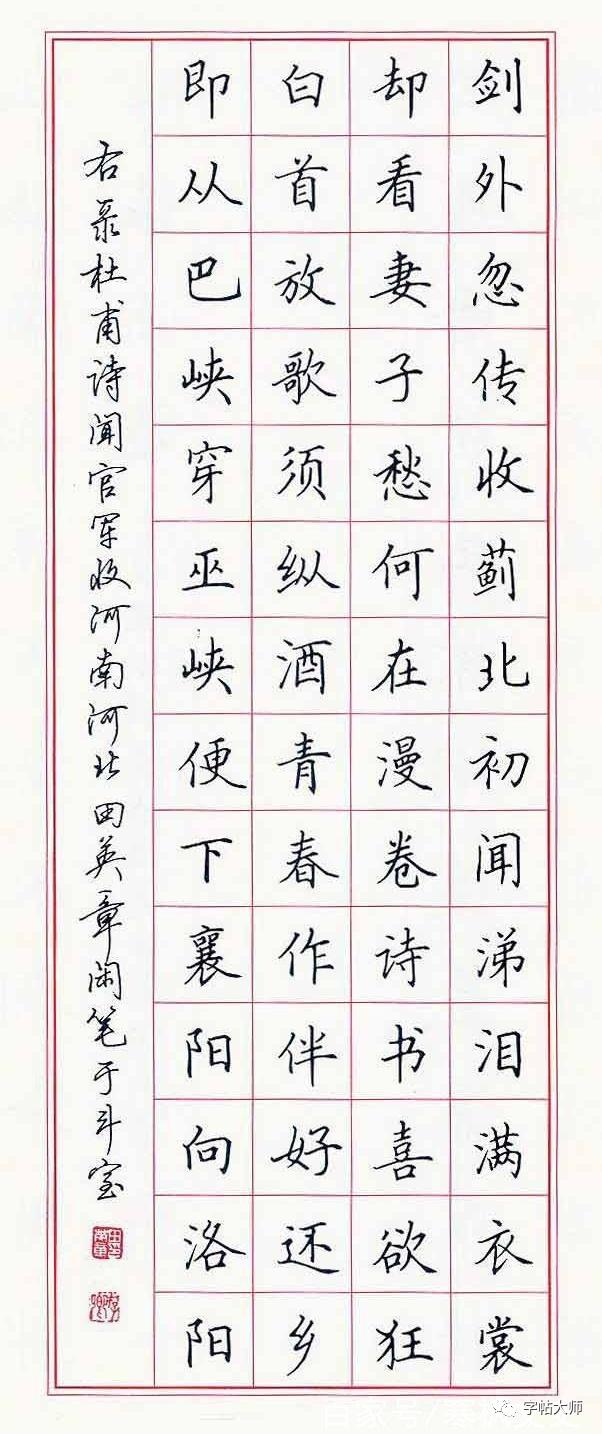 剑外忽传收蓟北初闻涕泪满衣裳
却看妻子愁何在漫卷诗书喜欲狂
白首放歌须纵酒青春作伴好还乡
即从巴峡穿巫峡便下襄阳向洛阳
右录杜甫诗闻官军收河南河北田英章闲笔于斗室
字帖大师